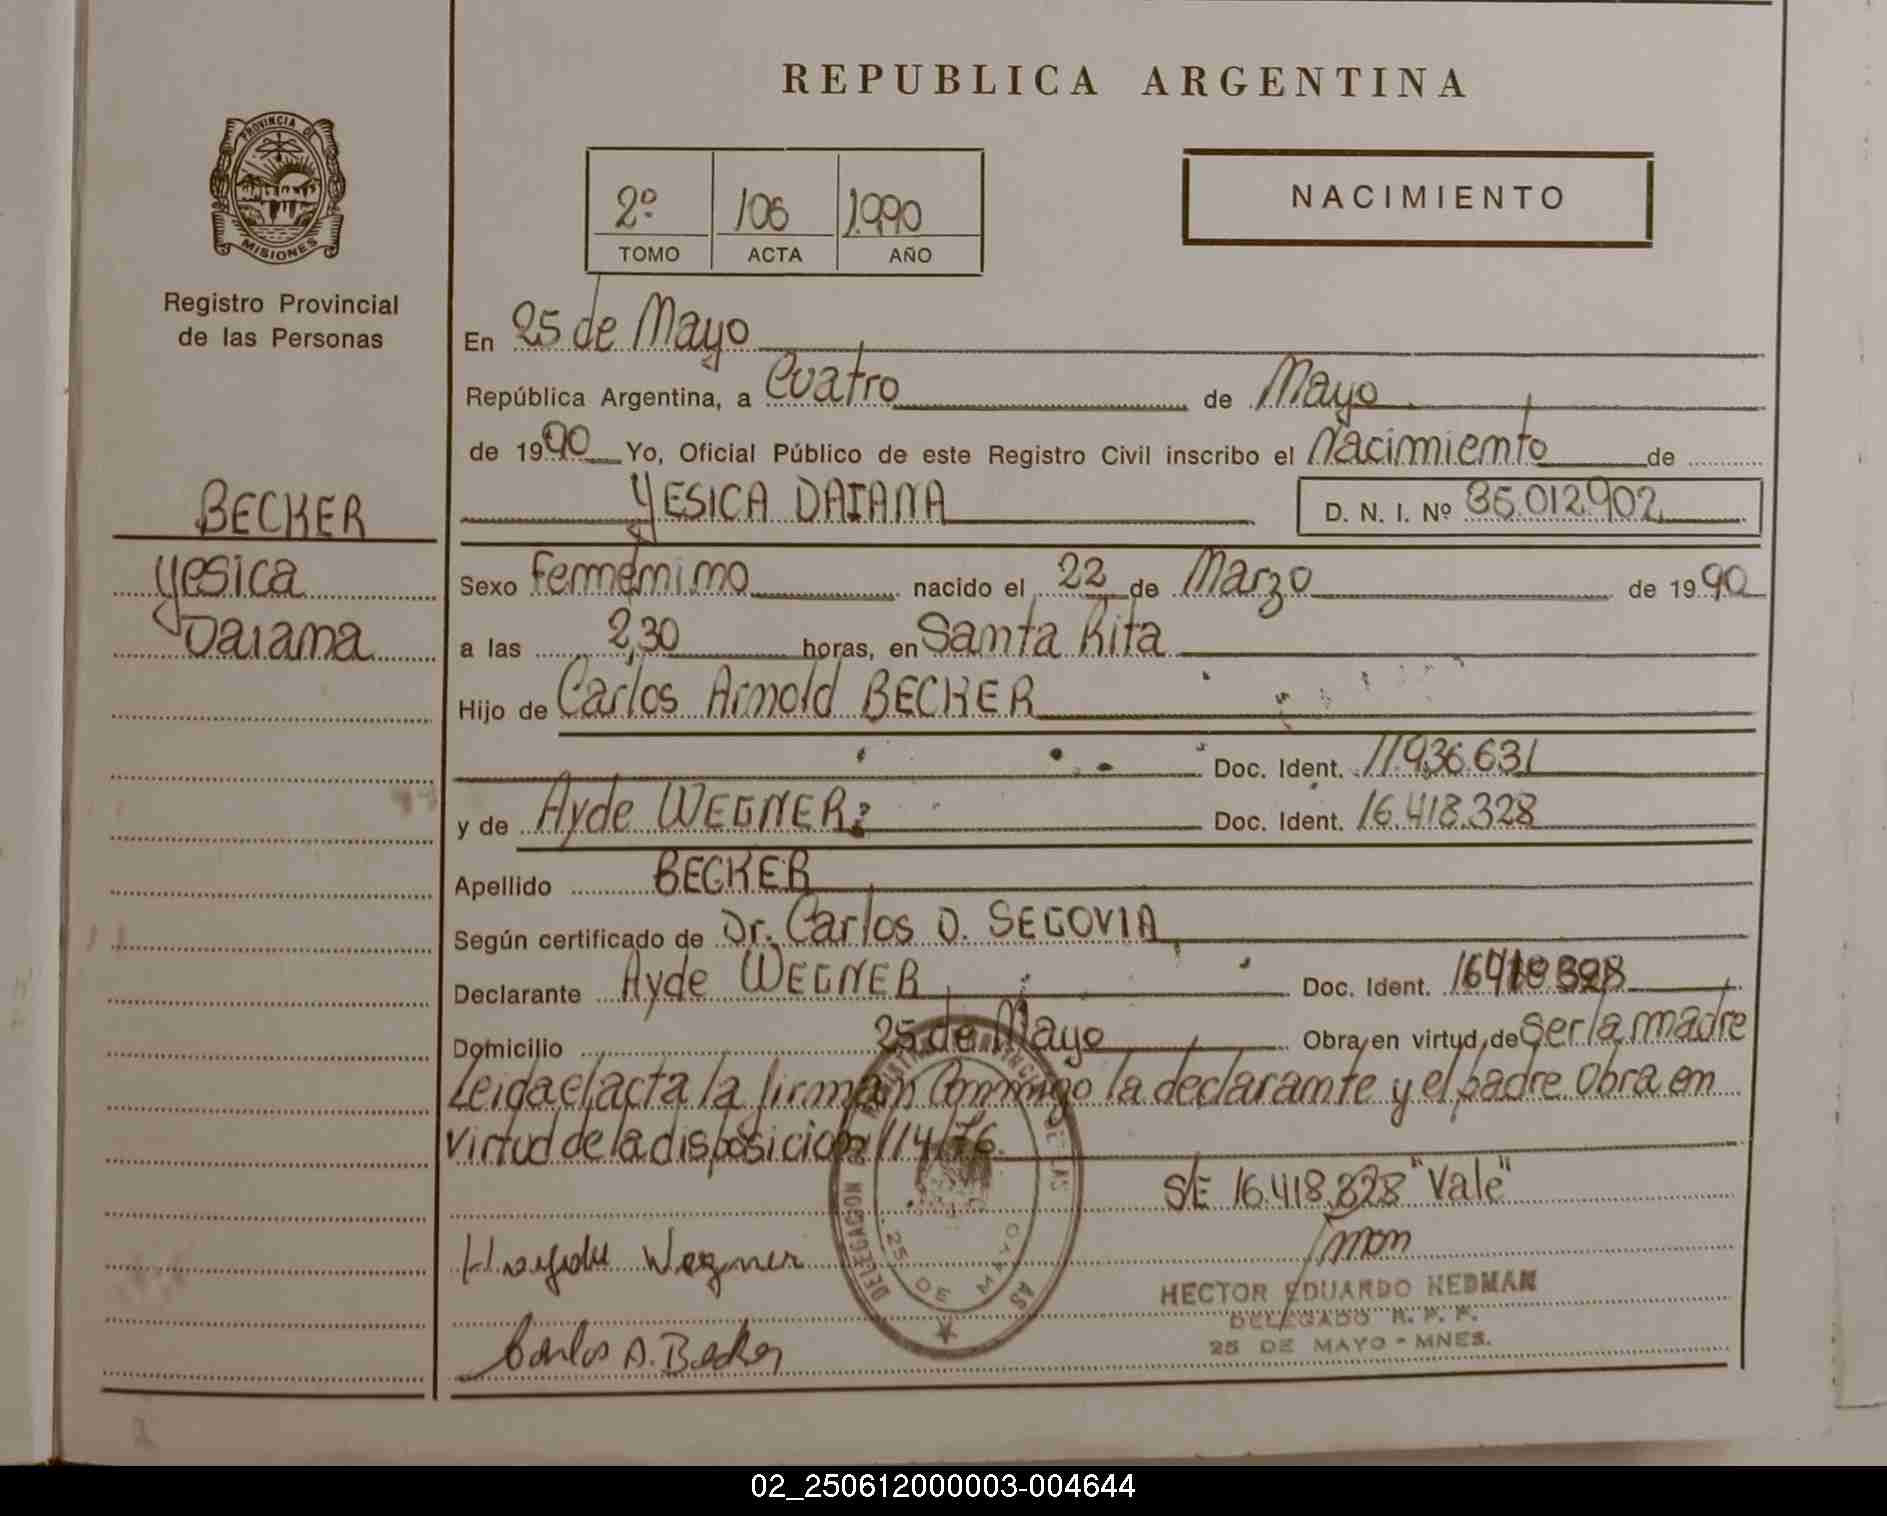 REPUBLICA ARGENTINA
PROVINCIA DE
MISIONES
Registro Provincial
de las Personas
2º 106 1.990
TOMO ACTA AÑO
NACIMIENTO
En 25 de Mayo
República Argentina, a Cuatro de Mayo
de 1990 Yo, Oficial Público de este Registro Civil inscribo el Nacimiento de
YESICA DAIANA D. N. I. Nº 35.012.902
BECKER
Yesica
Daiana
Sexo Femenino nacido el 22 de Marzo de 1990
a las 2,30 horas, en Santa Rita
Hijo de Carlos Arnold BECKER
Doc. Ident. 11.936.631
y de Ayde WEGNER Doc. Ident. 16.418.328
Apellido BECKER
Según certificado de Dr. Carlos D. SEGOVIA
Declarante Ayde WEGNER Doc. Ident.
Domicilio 25 de Mayo Obra en virtud de Ser la madre
Leida el acta la firman Conmigo la declarante y el padre Obra en
virtud de la disposicion 114/76.
S/E 16.418.328 "Vale"
Haydu Wegner
Carlos A. Becker
DELEGACION
25 DE MAYO
HECTOR EDUARDO HEDMAN
DELEGADO R. P. P.
25 DE MAYO - MNES.
02_250612000003-004644